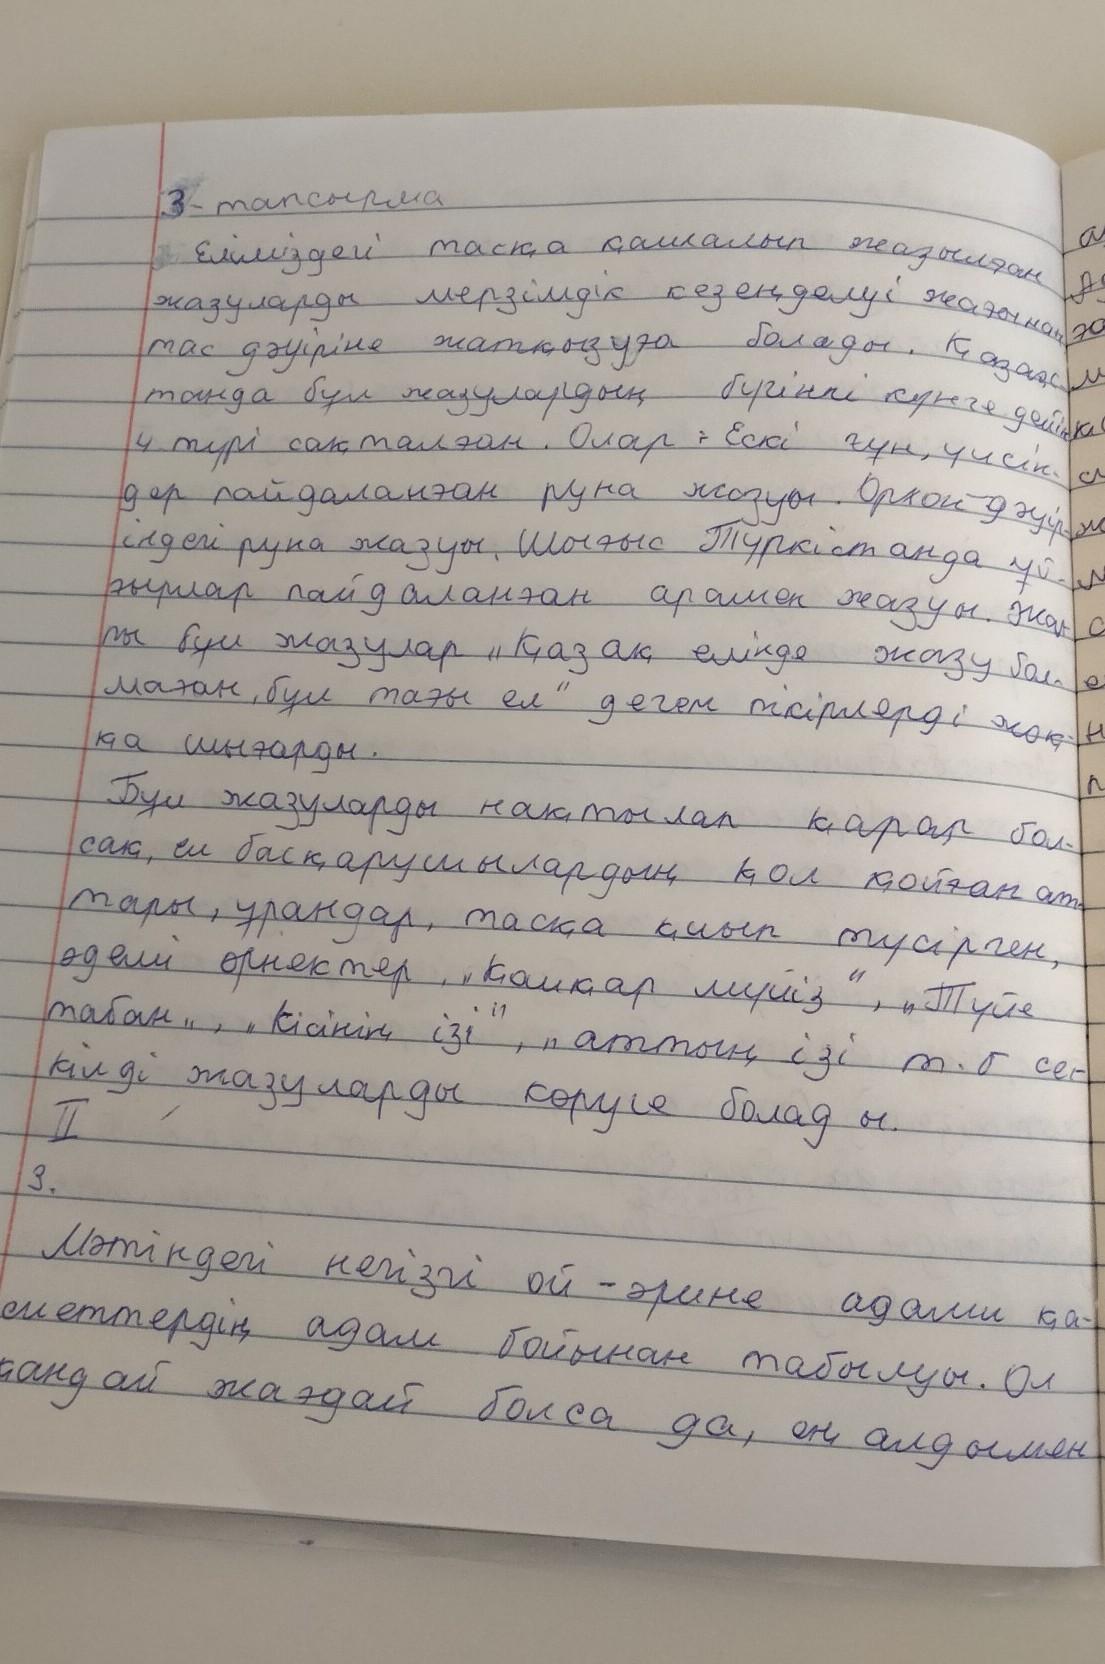 3- тапсырма
Еліміздегі тасқа қашалып жазылған
жазуларды мерзімдік кезеңделуі жағынан
тас дәуіріне жатқызуға болады. Қазақс
танда бұл жазулардың бүгінгі күнге дейін
4 түрі сақталған. Олар: Ескі ғұн, үйсін-
дер пайдаланған руна жазуы. Орхон дәуір-
індегі руна жазуы. Шығыс Түркістанда ұй-
ғырлар пайдаланған арамен жазуы. Жал
пы бұл жазулар „Қазақ елінде жазу бол-
маған, бұл тағы ел" деген пікірлерді жоқ-
қа шығарды.
Бұл жазуларды нақтылап қарар бол-
сақ, ел басқарушылардың қол қойған ат-
тары, ұрандар, тасқа қиып түсірген,
әдемі өрнектер, „Қошқар мүйіз", „Түйе
табан„, „Кісінің ізі", „аттың ізі т.б сек
кілді жазуларды көруге болады.
II
3.
Мәтіндегі негізгі ой - әрине адами қа-
сиеттердің адам бойынан табылуы. Ол
қандай жағдай болса да, ең алдымен